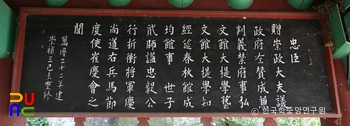 忠臣
贈崇政大夫議
政府左贊成兼
判義禁府事弘
文館大提學藝
文館大提學知
經筵春秋館成
均館事 世子
貳師諡忠毅公
行折衝將軍慶
尚道右兵馬節
度使崔慶會之
閭
萬曆二十二年建